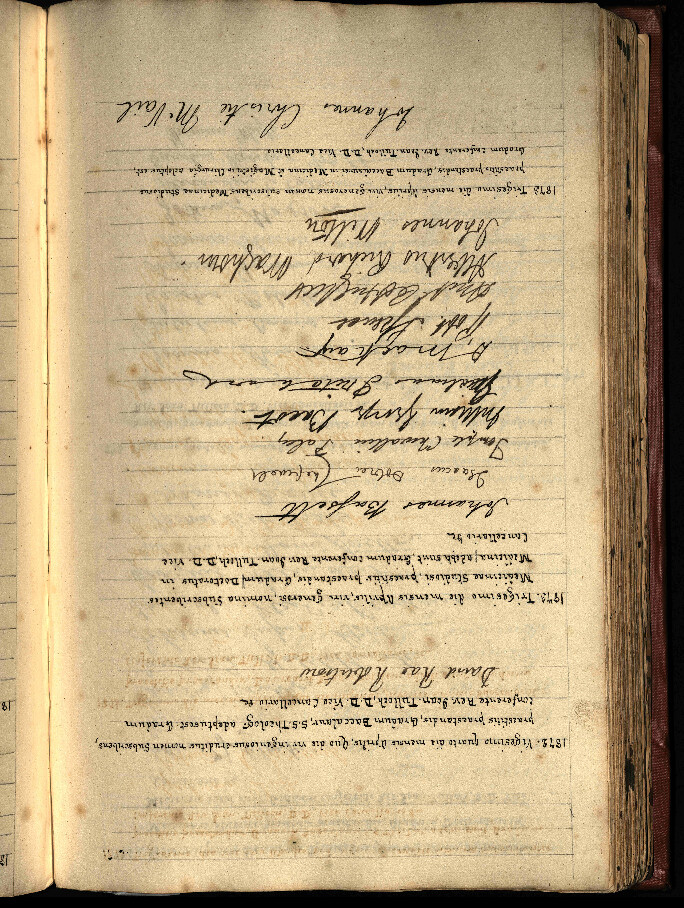 1872. Vigesimo quarto die mensis Aprilis, Quo die vir ingeniosus eruditus nomen Subscribens,
praestitis praestandis, Gradum Baccalaur. S.S. Theolog. adeptus est: Gradum
conferente Rev. Joan. Tulloch, D.D. Vice Cancellario &c
David Rae Robertson
1872. Trigesimo die mensis Aprilis, viri generosi, nomina Subscribentes
Medicinae Studiosi, praestitis praestandis, Gradum Doctoratus in
Medicina, adepti sunt, Gradum conferente Rev. Joan. Tulloch, D.D. Vice
Cancellario &c
Johannes Bassett
Isaacus
Temple Chevallier
William George Bacot
D. Mackay
Robt.
Richard
Johannes Milton
1872. Trigesimo die mensis Aprilis, vir generosus nomen subscribens Medicinae Studiosus
praestitis praestandis, Gradum Baccalaureum in Medicina et Magistrum in Chirurgia adeptus est.
Gradum conferente Rev. Joan. Tulloch, D.D. Vice Cancellario
Johannes Christie McVail